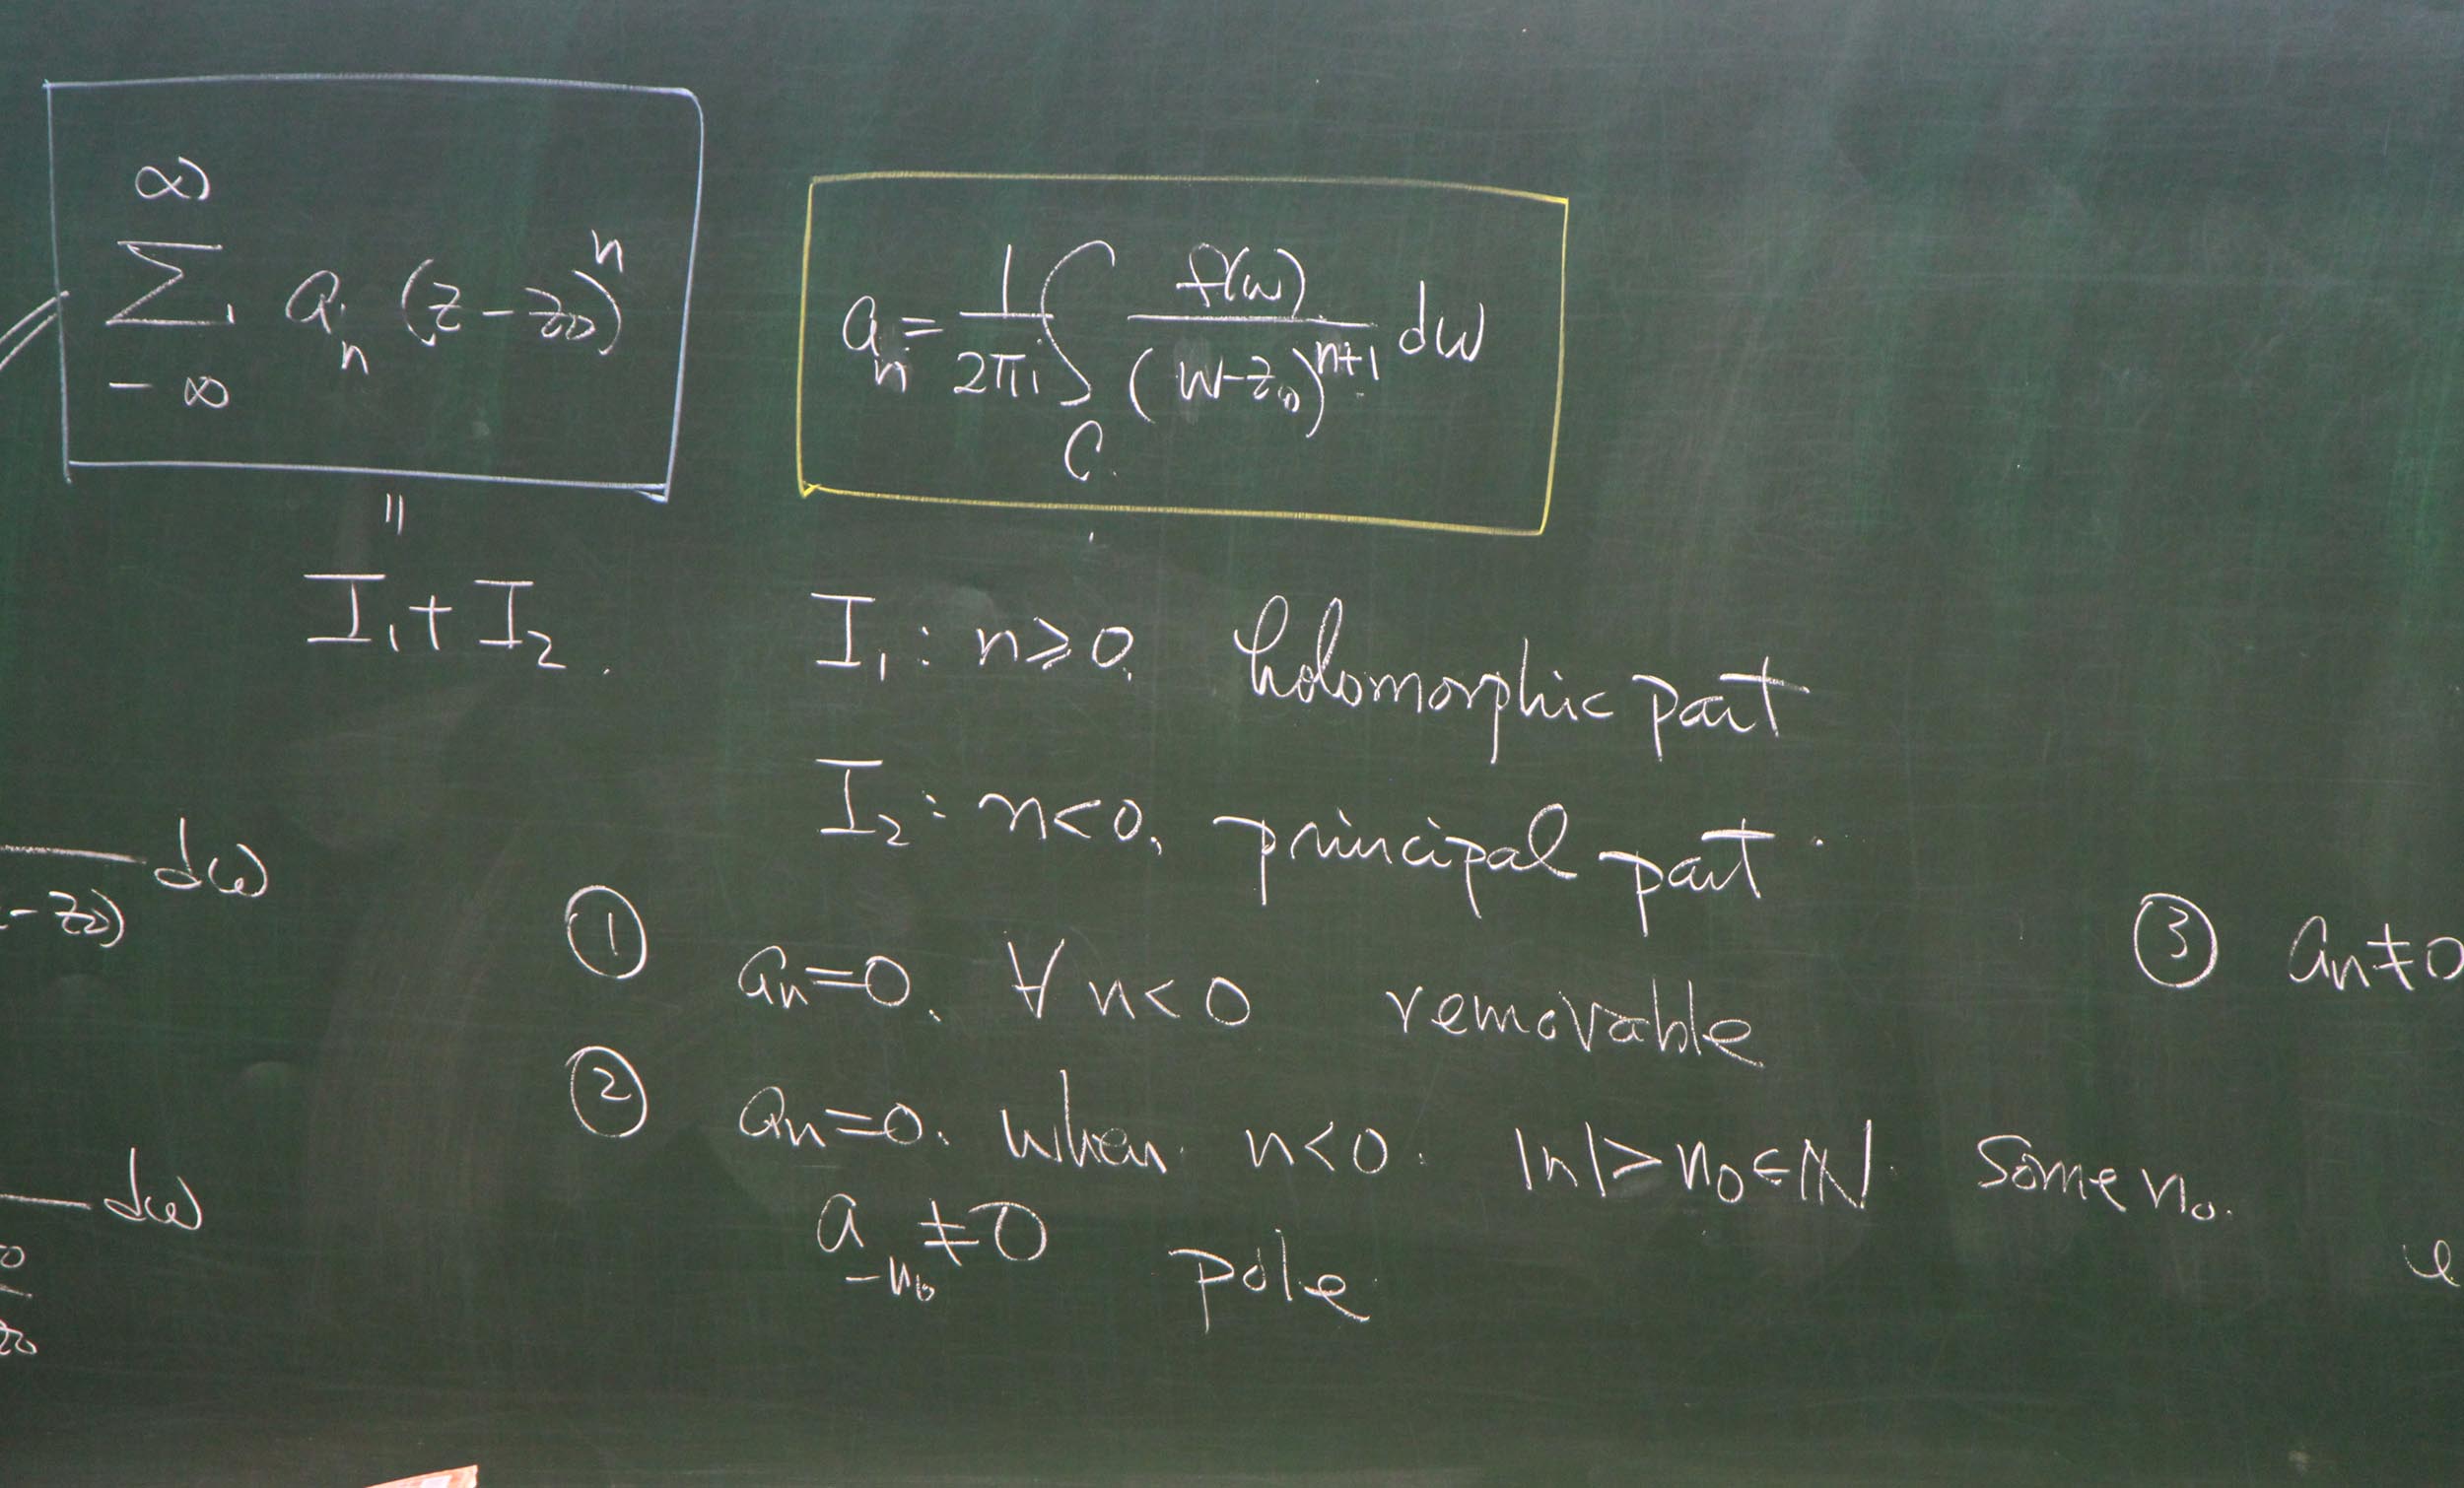 ∞
∑ aₙ (z-z₀)ⁿ
-∞
aₙ = 1/2πi ∫_C f(w)/(w-z₀)ⁿ⁺¹ dw
=
I₁ + I₂.
I₁: n ⩾ 0. holomorphic part
I₂: n < 0, principal part.
dw
-z₀)
① aₙ = 0. ∀ n < 0 removable
② aₙ = 0. when n < 0. |n| > n₀ ∈ ℕ some n₀.
a₋ₙ₀ ≠ 0 pole
③ aₙ ≠ 0
dw